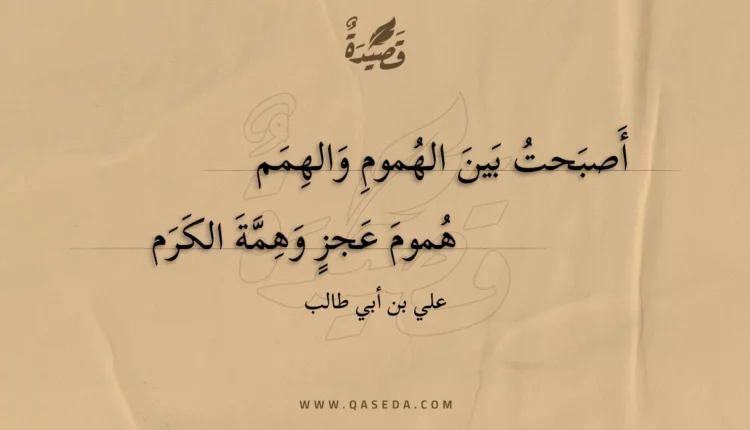 قَصِيْدَةٌ
أَصبَحتُ بَينَ الهُمومِ وَالهِمَم
هُمومَ عَجزٍ وَهِمَّةَ الكَرَم
علي بن أبي طالب
WWW.QASEDA.COM